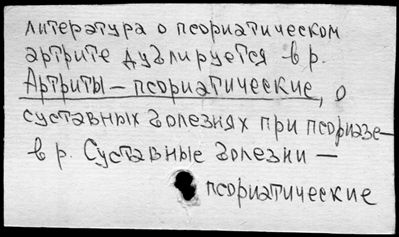 литература о псориатическом
артрите дублируется в р.
Артриты — псориатические, о
суставных болезнях при псориазе —
в р. Суставные болезни —
псориатические